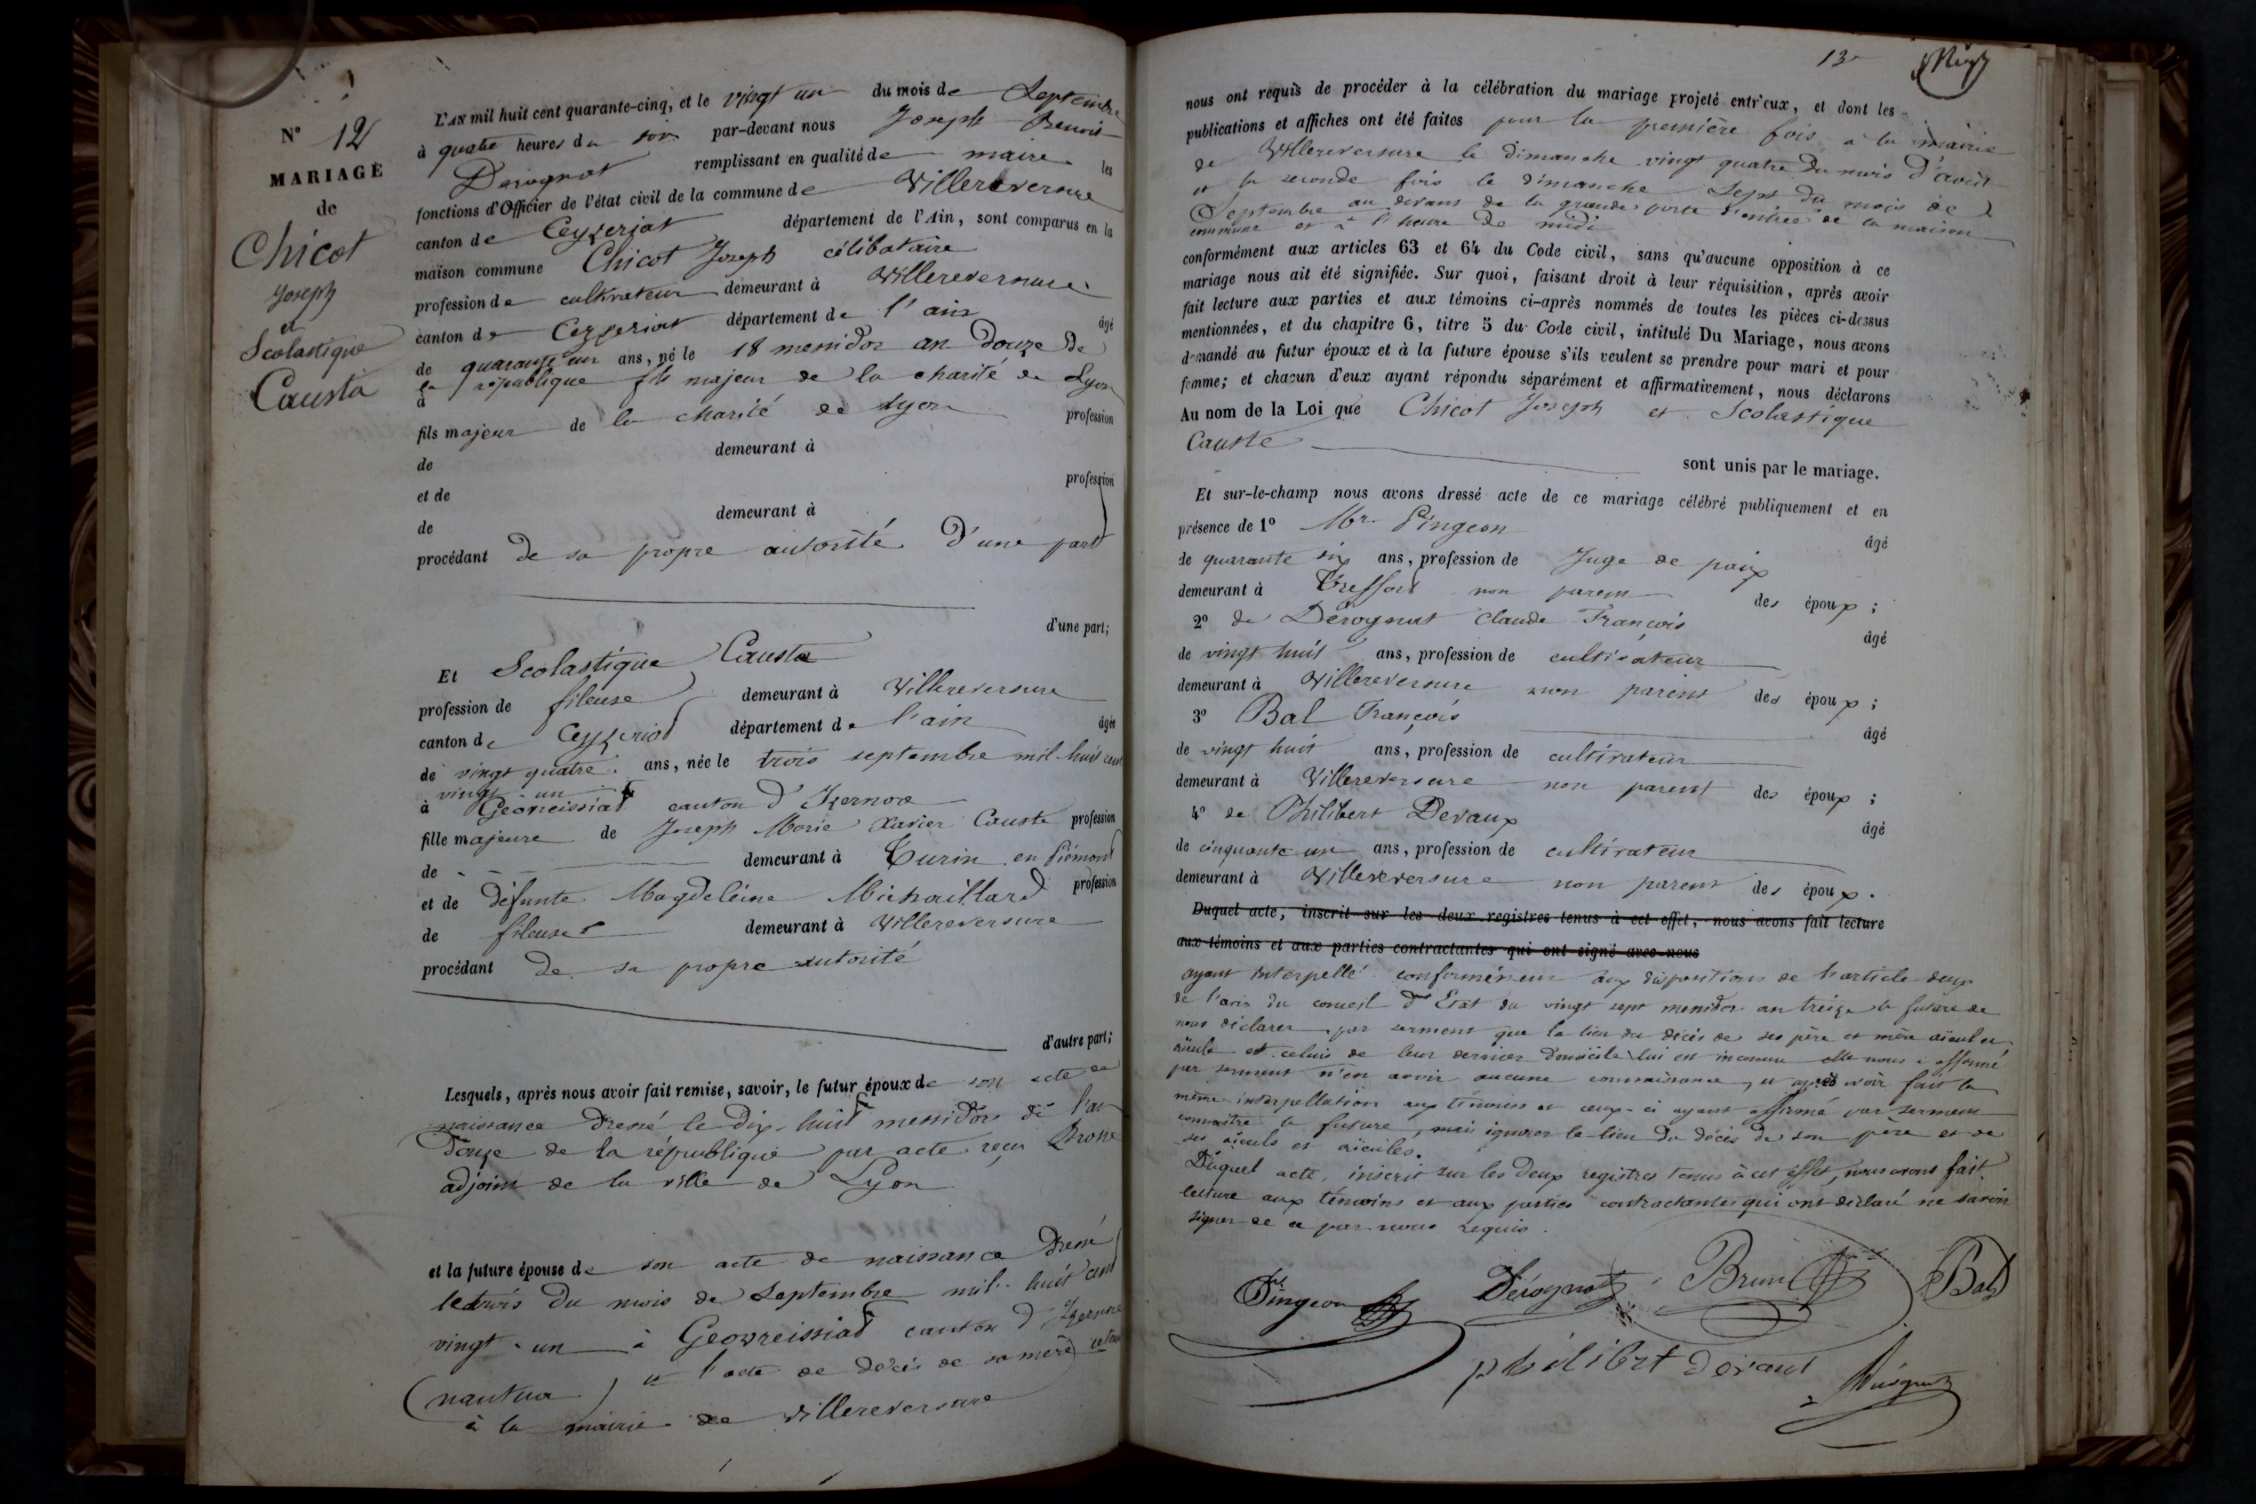 N° 12
MARIAGE
de
Chicot
Joseph
et
Scolastique
Causta
L'AN mil huit cent quarante-cinq, et le vingt un du mois de Septembre
à quatre heures du soir par-devant nous Joseph Benoit
Derognat remplissant en qualité de maire les
fonctions d'Officier de l'état civil de la commune de Villereversure
canton de Ceyzeriat département de l'Ain, sont comparus en la
maison commune Chicot Joseph célibataire
profession de cultivateur demeurant à Villereversure
canton de Ceyzeriat département de l'ain âgé
de quarante un ans, né le 18 messidor an douze de
la république fils majeur de la charité de Lyon
à
fils majeur de la charité de Lyon profession
de demeurant à
et de profession
de demeurant à
procédant de sa propre autorité d'une part
d'une part;
Et Scolastique Causta
profession de fileuse demeurant à Villereversure
canton de Ceyzeriat département de l'ain âgée
de vingt quatre ans, née le trois septembre mil huit cent
vingt un
à Géovreissiat canton d'Izernore
fille majeure de Joseph Marie Xavier Causte profession
de demeurant à Turin en Piémont
et de défunte Magdeleine Michaillard profession
de fileuse demeurant à Villereversure
procédant de sa propre autorité
d'autre part;
Lesquels, après nous avoir fait remise, savoir, le futur époux de son acte de
naissance dressé le dix-huit messidor de l'an
douze de la république par acte reçu
adjoint de la ville de Lyon
et la future épouse de son acte de naissance dressé
le trois du mois de Septembre mil huit cent
vingt-un à Geovreissiat canton d'Izernore
(nantua) et l'acte de décès de sa mère
à la mairie de Villereversure
13
nous ont requis de procéder à la célébration du mariage projeté entr'eux, et dont les
publications et affiches ont été faites pour la première fois à la mairie
de Villereversure le dimanche vingt quatre du mois d'août
et la seconde fois le dimanche sept du mois de
Septembre au devant de la grande porte d'entrée de la maison
commune et à l'heure de midi
conformément aux articles 63 et 64 du Code civil, sans qu'aucune opposition à ce
mariage nous ait été signifiée. Sur quoi, faisant droit à leur réquisition, après avoir
fait lecture aux parties et aux témoins ci-après nommés de toutes les pièces ci-dessus
mentionnées, et du chapitre 6, titre 5 du Code civil, intitulé Du Mariage, nous avons
demandé au futur époux et à la future épouse s'ils veulent se prendre pour mari et pour
femme; et chacun d'eux ayant répondu séparément et affirmativement, nous déclarons
Au nom de la Loi que Chicot Joseph et Scolastique
Causte
sont unis par le mariage.
Et sur-le-champ nous avons dressé acte de ce mariage célébré publiquement et en
présence de 1° Mr. Pingeon âgé
de quarante six ans, profession de Juge de paix
demeurant à Treffort non parent des époux;
2° de Dérognat Claude François âgé
de vingt huit ans, profession de cultivateur
demeurant à Villereversure non parent des époux;
3° Bal François âgé
de vingt huit ans, profession de cultivateur
demeurant à Villereversure non parent des époux;
4° de Philibert Devaux âgé
de cinquante un ans, profession de cultivateur
demeurant à Villereversure non parent des époux.
Duquel acte, inscrit sur les deux registres tenus à cet effet, nous avons fait lecture
aux témoins et aux parties contractantes qui ont signé avec nous
ayant interpellé conformément aux dispositions de l'article deux
de l'avis du conseil d'Etat du vingt sept messidor an treize la future de
nous déclarer par serment que le lieu du décès de ses père et mère aïeul et
aïeule et celui de leur dernier domicile lui est inconnu elle nous a affirmé
par serment n'en avoir aucune connaissance, et après avoir fait la
même interpellation aux témoins et ceux-ci ayant affirmé par serment
connaitre la future, mais ignorer le lieu du décès de son père et de
ses aïeuls et aïeules.
Duquel acte, inscrit sur les deux registres tenus à cet effet, nous avons fait
lecture aux témoins et aux parties contractantes qui ont déclaré ne savoir
signer de ce par nous requis.
Pingeon Dérognat Brun Bal
philibert devaux